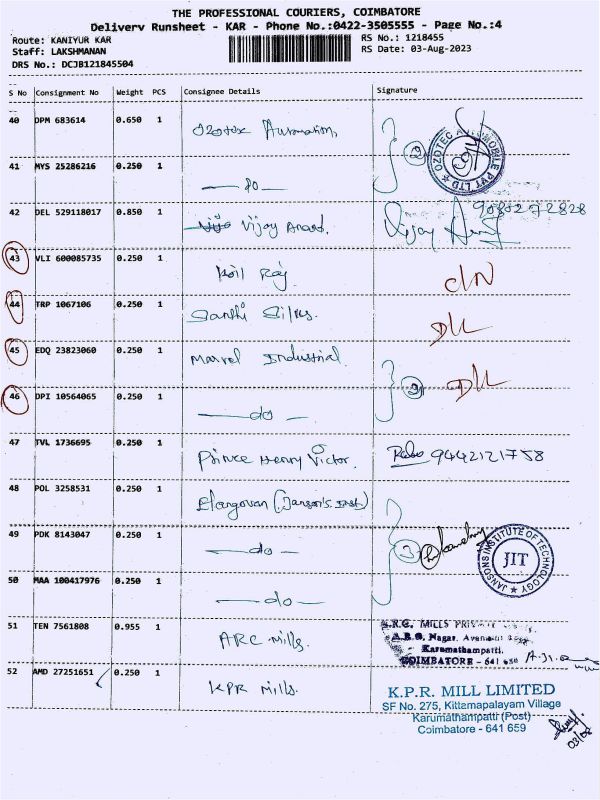 THE PROFESSIONAL COURIERS, COIMBATORE
Delivery Runsheet - KAR - Phone No.:0422-3505555 - Page No.:4
Route: KANIYUR KAR
RS No.: 1218455
Staff: LAKSHMANAN
RS Date: 03-Aug-2023
DRS No.: DCJB121845504
S No Consignment No Weight PCS Consignee Details Signature
40 DPM 683614 0.650 1 Ozotex Automation,
2
OZOTEC AUTOMOBILE PVT LTD
41 MYS 25286216 0.250 1 — do —
42 DEL 529118017 0.850 1 Vijay Anand. Vijay
9080272828
43 VLI 600085735 0.250 1 Koil Raj D/N
44 TRP 1067106 0.250 1 Santhi Silks. DLL
45 EDQ 23823060 0.250 1 Marvel Industrial. 2 DLL
46 DPI 10564065 0.250 1 — do —
47 TVL 1736695 0.250 1 Prince Henry Victor. 9442121758
48 POL 3258531 0.250 1 Elangovan (Janson's Inst)
49 PDK 8143047 0.250 1 — do — 3
JANSONS INSTITUTE OF TECHNOLOGY
JIT
50 MAA 100417976 0.250 1 — do —
51 TEN 7561808 0.955 1 ARC Mills.
A.R.C. MILLS PRIVATE
A.R.G. Nagar, Avanashi
Karumathampatti.
COIMBATORE - 641
52 AMD 27251651 0.250 1 KPR Mills.
K.P.R. MILL LIMITED
SF No. 275, Kittamapalayam Village
Karumathampatti (Post)
Coimbatore - 641 659
03/08